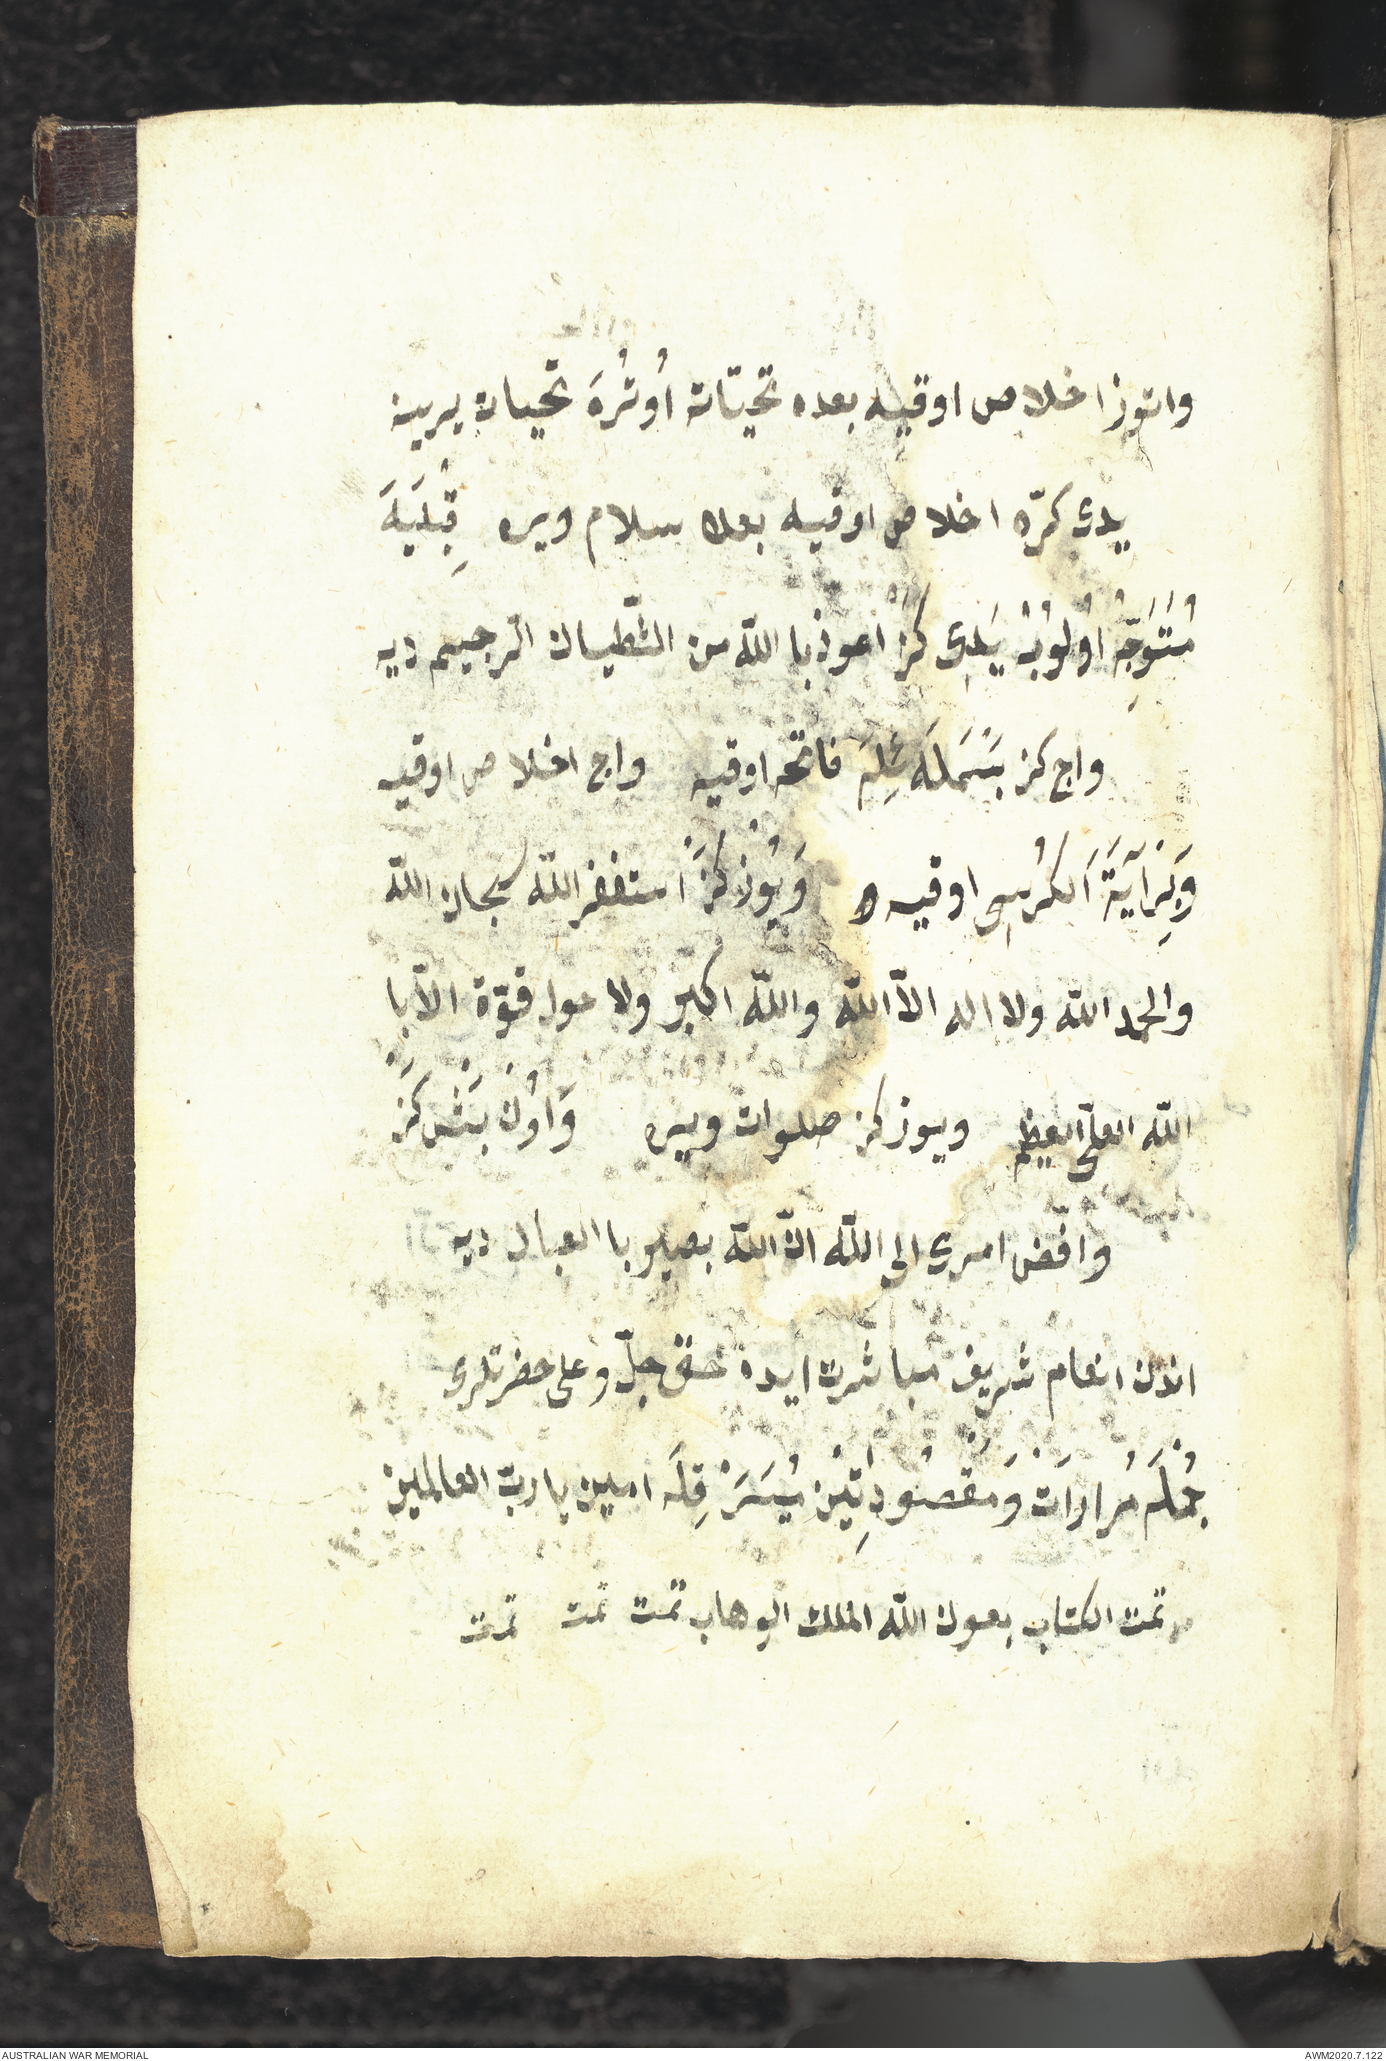 واتوز اخلاص اوقيه بعده تحيّاته اُوتُرَه تحيات يرينه
يدى كرّه اخلاص اوقيه بعده سلام ويره قِبْلَيَه
مُتَوَجِّه اُولُوبْ يَدِى كَزْ اعوذ با الله من الشّطيان الرجيم ديه
واج كز بَسْمَلَه ئِلَه فاتحه اوقيه واج اخلاص اوقيه
وَبِرْ آيَةَ اَلكُرْسِى اوقيه وَيُوزْ كَزْ استغفر الله سبحان الله
والحمد الله ولا اله الاّ الله والله اكبر ولا حول قوّة الاّ با
الله العلى العظيم ويوز كز صلوات ويره وَاوُنْ بَشْ كَزْ
وافّض امرى الى الله انّ الله بصير با العباد ديه
اندن انعام شريفه مباشرت ايده حق جلّ وعلى حضرتلرى
جُمْلَه مُرادَاتْ وَمَقْصُودِتِينْ مُيَسَرْ قِلَه امين يا ربّ العالمين
تمت الكتاب بعون الله الملك الوهاب تمت تمت تمت
AUSTRALIAN WAR MEMORIAL
AWM2020.7.122